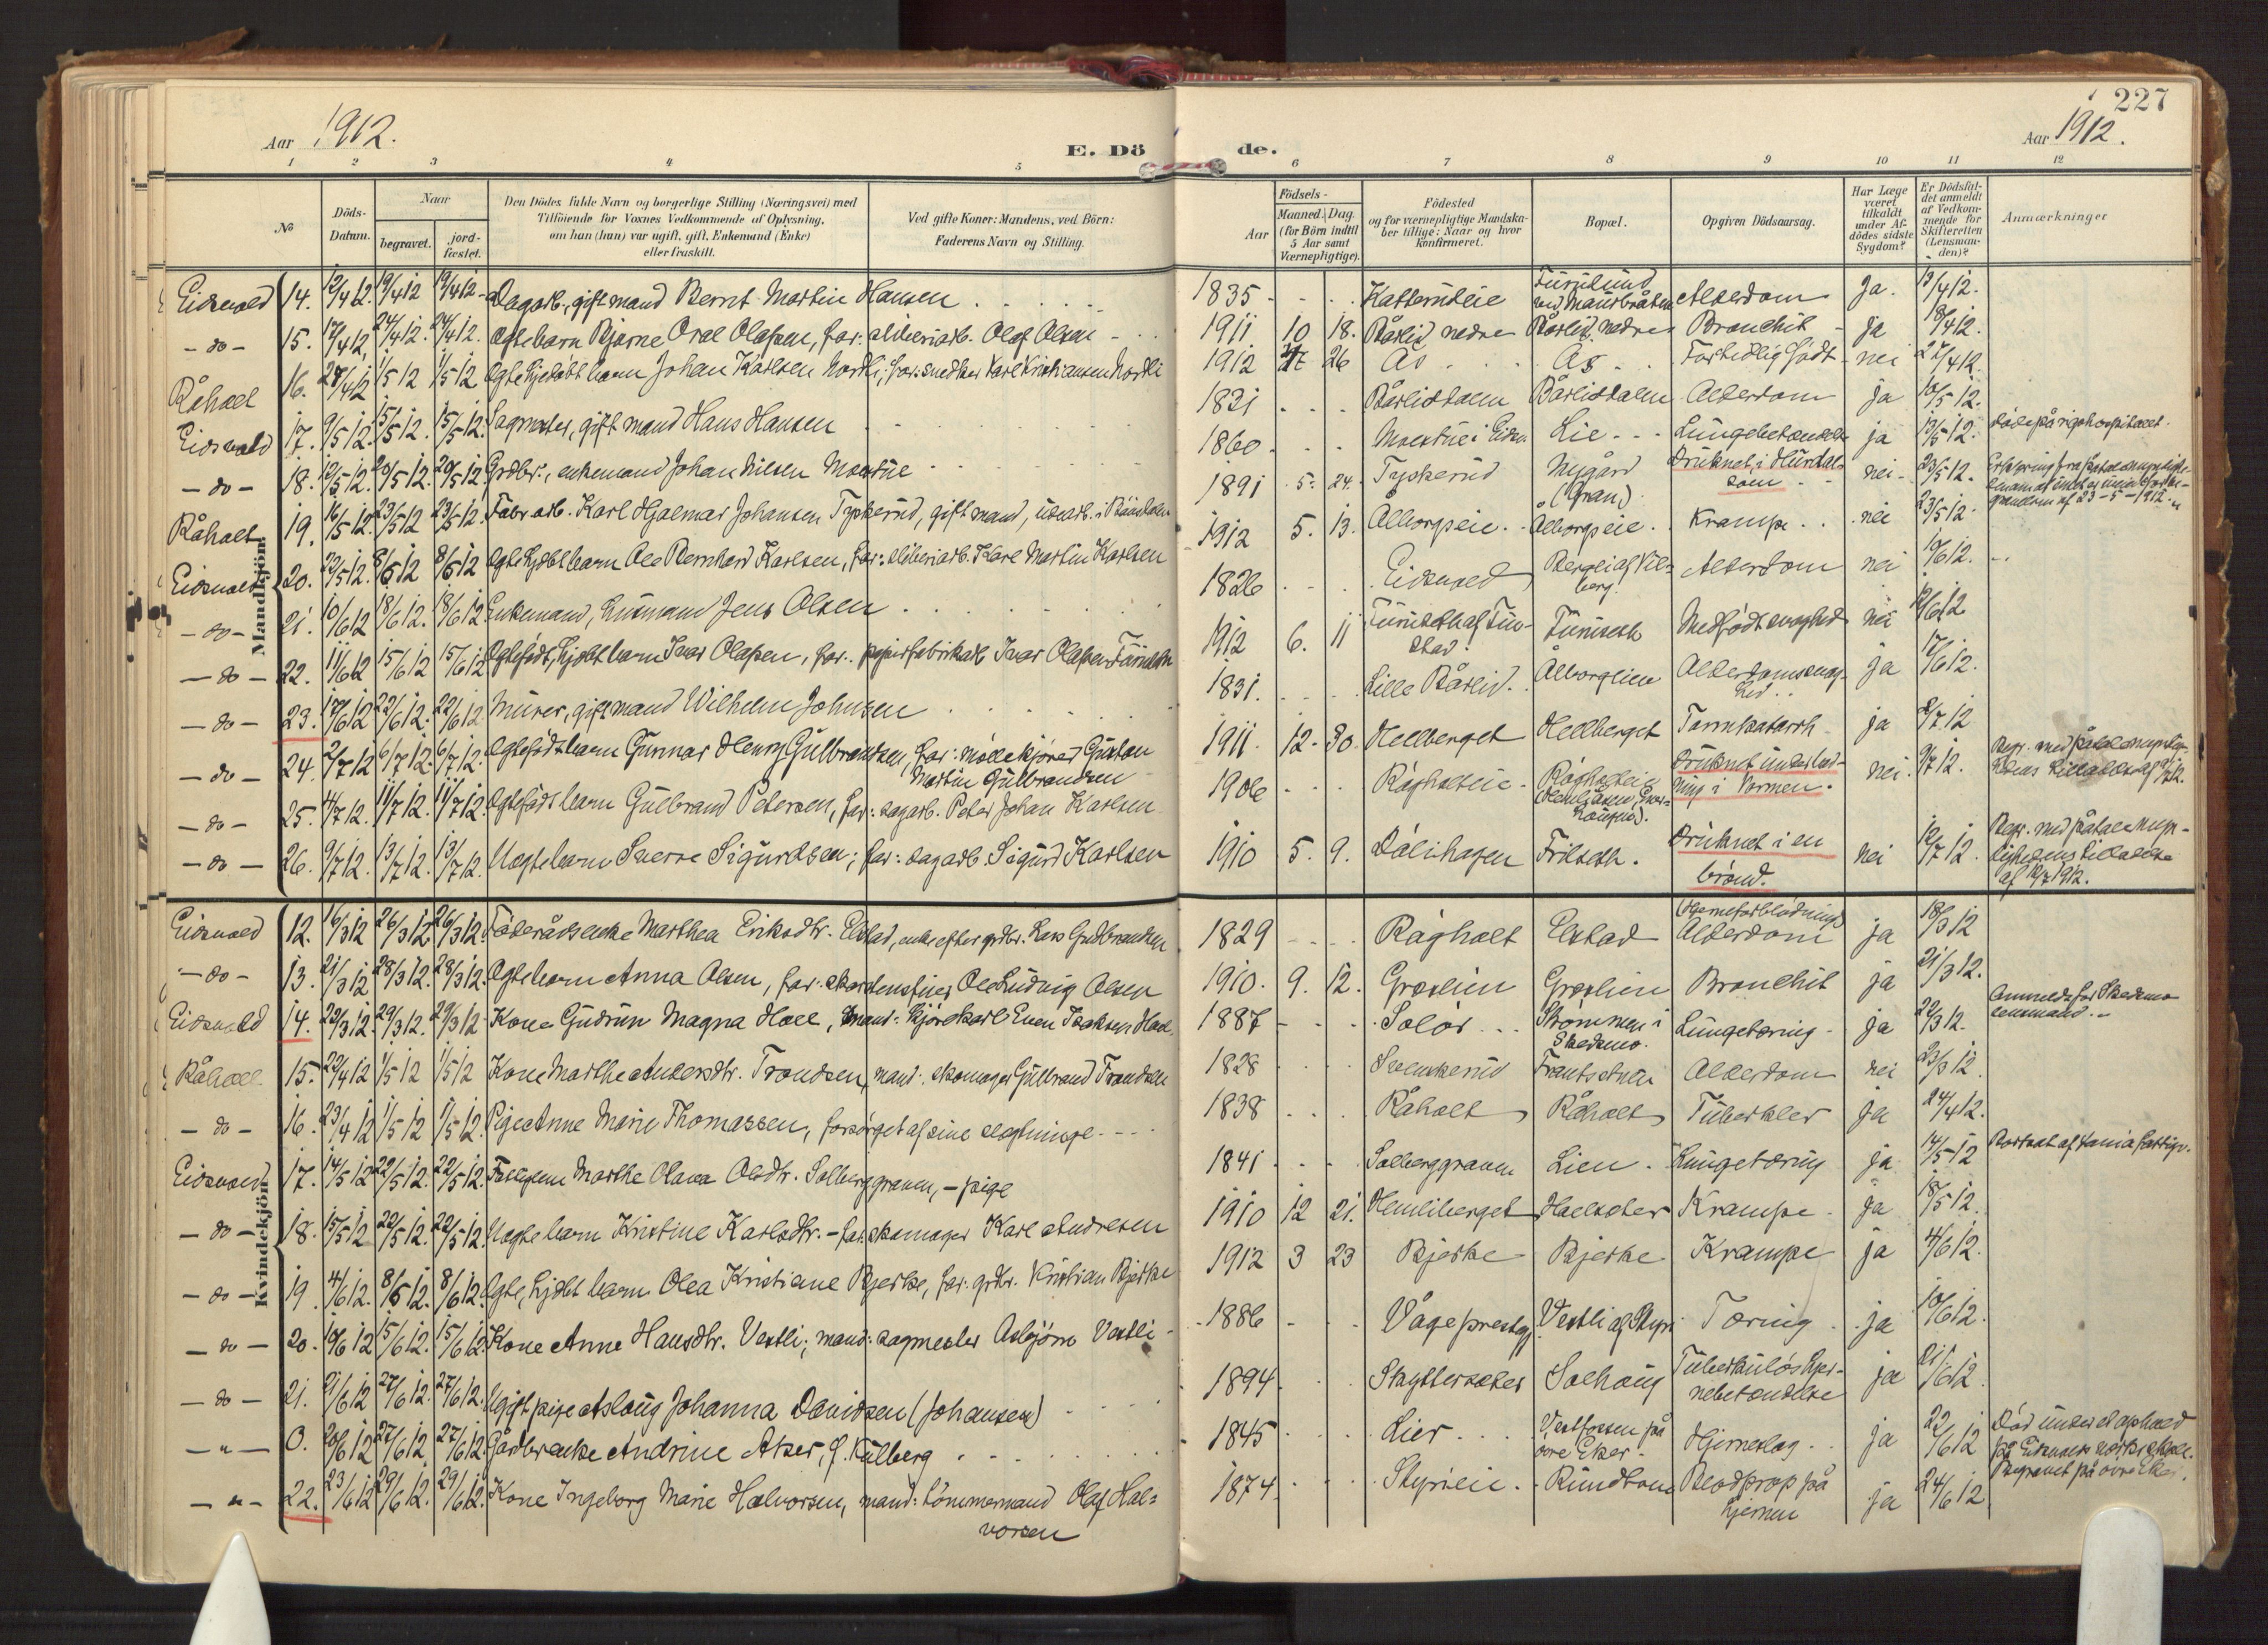 227
Aar 1912.
E. Dö de.
Aar 1912.
1 2 3 4 5 6 7 8 9 10 11 12
No
Döds-Datum.
Naar
begravet.
jord-fæstet.
Den Dödes fulde Navn og borgerlige Stilling (Næringsvei) med
Tilföiende for Voxnes Vedkommende af Oplysning,
om han (hun) var ugift, gift, Enkemand (Enke)
eller fraskilt.
Ved gifte Koner: Mandens, ved Börn:
Faderens Navn og Stilling.
Aar
Födsels-
Maaned. Dag.
(for Börn indtil
5 Aar samt
Værnepligtige).
Födested
og for værnepligtige Mandska-
ber tillige: Naar og hvor
konfirmeret.
Bopæl.
Opgiven Dödsaarsag.
Har Læge
været
tilkaldt
under Af-
dödes sidste
Sygdom?
Er Dödsfal-
det anmeldt
af Vedkom-
mende for
Skifteretten
(Lensman-
den)?
Anmærkninger
Mandkjön
Eidsvold 14. 12/4 12. 19/4 12 19/4 12. Dagarb., gift mand Bernt Martin Hansen 1835 Alderdom Ja. 13/4 12.
- do - 15. 17/4 12 24/4 12. 24/4 12. Ægte barn Bjarne Oral Olafsen, far: sliberiarb. Olaf Olsen 1911 10 18. Bårlid nedre Bårlid nedre Bronchit ja 18/4 12.
Råholt 16. 1/5 12 1/5 12 Ægte hjdøbt barn Johan Karlsen Nordli, far: snedker Karl Kristiansen Nordli 1912 26 Ås Ås Fortidlig født nei 27/4 12.
Eidsvold 17. 9/5 12. 15/5 12. 15/5 12. Sagmester, gift mand Hans Hansen 1831 Bårlidalen Bårlidalen Alderdom ja 10/5 12.
- do - 18. 12/5 12. 20/5 12. 20/5 12. Grdbr., enkemand Johan Nilsen Moestue 1860 Moestue i Eidsv. Lie Lungebetændelse ja 13/5 12. døde på rigshospitalet.
Råholt 19. 16/5 12. 23/5 12 23/5 12. Fabr. arb. Karl Hjalmar Johansen Tyskerud, gift mand 1891 5. 24. Tyskerud Nygård (Gran). Druknet i Hurdal- nei 23/5 12.
Eidsvold 20. 22/5 12. 8/6 12 8/6 12 Ægte hjdøbt barn Ole Bernhard Karlsen, far: sliberiarb. Karl Martin Karlsen 1912 5. 13. Ålborgseie Ålborgseie Krampe nei 23/5 12.
- do - 21. 10/6 12 18/6 12. 18/6 12. Enkemand, husmand Jens Olsen 1826 Eidsvold Alderdom nei 10/6 12.
- do - 22. 11/6 12 15/6 12 15/6 12 Ægtefødt, hjdøbt barn Ivar Olafsen, far: papirfabrikarb. Ivar Olafsen 1912 6. 11 Medfødt svaghed nei
- do - 23. 17/6 12 22/6 12. 22/6 12. Murer, gift mand Wilhelm Johnsen 1831. Lille Bårlid Ålborglien Alderdomssvag-
hed ja 17/6 12.
- do - 24. 2/7 12 6/7 12. 6/7 12. Ægtefødt barn Gunnar Henry Gulbrandsen, far: møllekjører Gustav
Martin Gulbrandsen 1911 12 30 Hellberget Hellberget Tarmkatarrh ja 2/7 12
- do - 25. 4/7 12. 11/7 12. 11/7 12. Ægtefødt barn Gulbrand Petersen, far: sagarb. Peter Johan Karlsen 1906 Rågholteie Druknet under bad-
ning i Vormen. nei 9/7 12.
- do - 26. 9/7 12. 13/7 12. 13/7 12. Uægte barn Sverre Sigurdsen; far: sagarb. Sigurd Karlsen 1910 5. 9. Dålihagen Frilseth. Druknet i en
brønd. nei 12/7 12. Begr. med påtalemyn-
dighedens tilladelse
af 12/7 1912.
Kvindekjön
Eidsvold 12. 16/3 12 26/3 12 26/3 12. Føderådsenke Marthea Eriksdtr. Elstad, enke efter grdbr. Lars Gudbrandsen 1829 Rågholt Elstad (Hjerneforblødning)
Alderdom ja 18/3 12
- do - 13. 21/3 12 28/3 12. 28/3 12. Ægte barn Anna Olsen, far: skorstensfeier Ole Ludvig Olsen 1910. 9. 12. Græslien Græslien Bronchit ja 21/3 12.
Eidsvold 14. 22/3 12. 29/3 12. 29/3 12 Kone Gudrun Magna Hoel, mand: kjørekarl Even Isaksen Hoel 1887 Solør Strømmen i
Skedsmo. Lungetæring ja 22/3 12. Anmeldt for Skedsmo
lensmand.
Råholt 15. 22/4 12 1/5 12 1/5 12 Kone Marthe Andersdtr. Trondsen, mand: skomager Gulbrand Trondsen 1828 Svenskerud Alderdom nei 23/3 12
- do - 16. 23/4 12 1/5 12 1/5 12. Pige Anne Marie Thomassen, forsørget af sine slægtninge 1838 Råholt Råholt Tuberkler Ja 24/4 12.
Eidsvold 17. 14/5 12 22/5 12. 22/5 12. Marthe Olava Olsdtr. Solberggraven, - pige 1841 Solberggraven Lien Lungetæring ja 14/5 12
- do - 18. 15/5 12 22/5 12. 22/5 12. Uægte barn Kristine Karlsdtr. - far: skomager Karl Andresen 1910 12 21. Hemliberget Haelseter Krampe Ja 18/5 12.
- do - 19. 4/6 12. 8/6 12. 8/6 12. Ægte, hjdøbt barn Olea Kristiane Bjerke, far: grdbr. Kristian Bjerke 1912 3 23 Bjerke Bjerke Krampe ja 4/6 12.
- do - 20. 10/6 12 15/6 12. 15/6 12. Kone Anne Hansdtr. Vestli; mand: sagmester Asbjørn Vestli 1886 Vågeprestgj. Vestli af Styri Tæring ja 10/6 12.
- do - 21. 21/6 12 27/6 12. 27/6 12. Ugift pige Aslaug Johanna Davidsen (Johansen) 1894 Skyttersæter Solhaug Tuberkuløs hjer-
nebetændelse ja 21/6 12
- " - 0. 20/6 12 27/6 12. 27/6 12 Gårdbr.enke Andrine Aker, f. Kulberg 1845 Lier Vestfossen på
øvre Eker Hjerneslag ja 22/6 12 Død under et ophold
på Eidsvolds verks skole.
Begravet på øvre Eker.
- " - 22. 23/6 12 29/6 12. 29/6 12. Kone Ingeborg Marie Halvorsen, mand: tømmermand Olaf Hal-
vorsen 1874 Styrieie Rundtom Blodprop på
hjernen ja 24/6 12